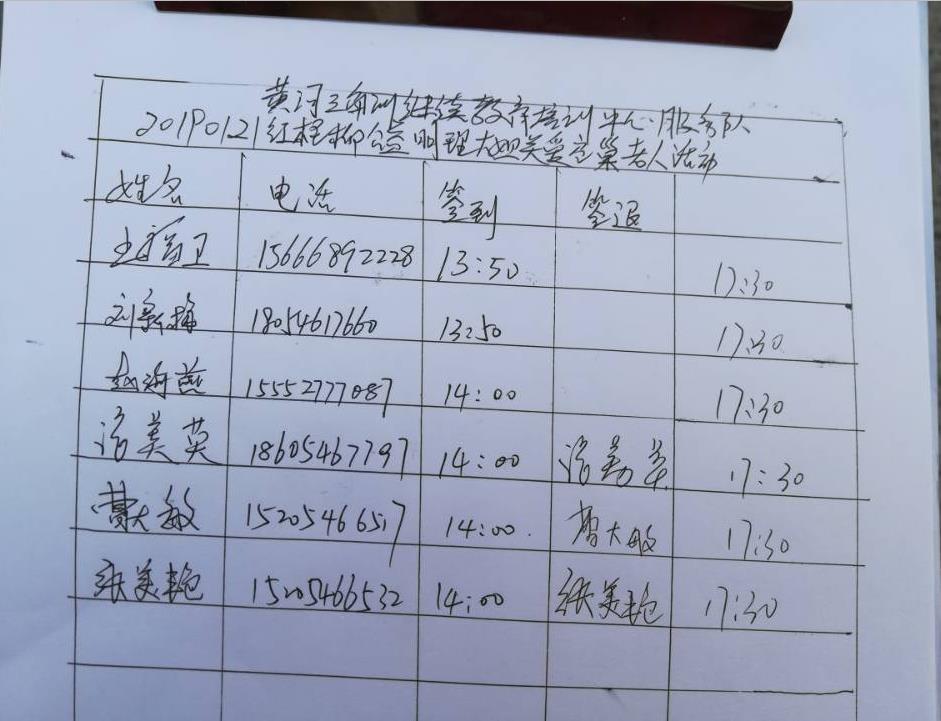 黄河三角洲继续教育培训中心服务队
20190121红柽柳公益明理大姐关爱空巢老人活动
姓名 电话 签到 签退
卫 15666892228 13:50 17:30
刘新梅 18054617660 13:50 17:30
赵海燕 15552777087 14:00 17:30
美英 18605467797 14:00 17:30
大敏 15205466517 14:00 大敏 17:30
张美艳 15205466532 14:00 张美艳 17:30